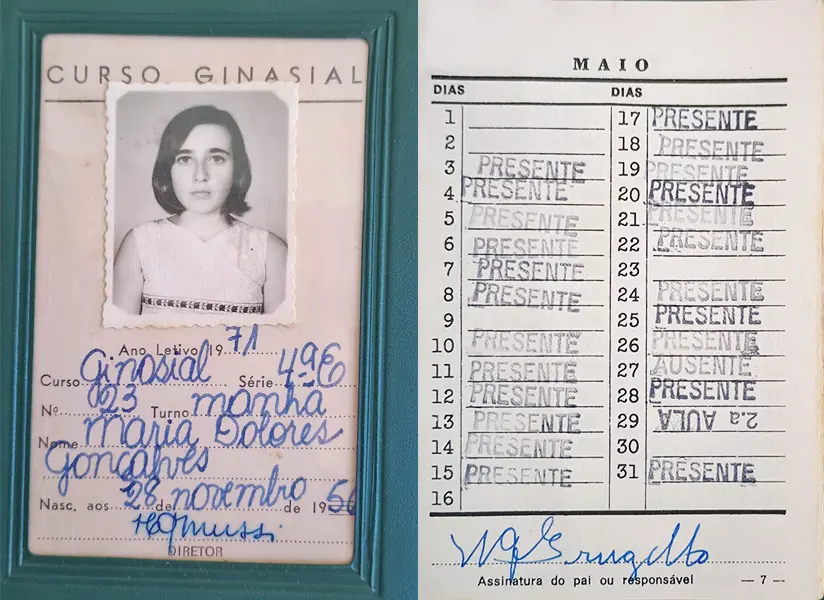 CURSO GINASIAL
Ano Letivo 1971
Curso Ginasial Série 4ªE
Nº 23 Turno manhã
Nome Maria Dolores
Gonçalves
Nasc. aos 28 de novembro de 1956
DIRETOR
MAIO
DIAS
1
2
3 PRESENTE
4 PRESENTE
5 PRESENTE
6 PRESENTE
7 PRESENTE
8 PRESENTE
9
10 PRESENTE
11 PRESENTE
12 PRESENTE
13 PRESENTE
14 PRESENTE
15 PRESENTE
16
DIAS
17 PRESENTE
18 PRESENTE
19 PRESENTE
20 PRESENTE
21 PRESENTE
22 PRESENTE
23
24 PRESENTE
25 PRESENTE
26 PRESENTE
27 AUSENTE
28 PRESENTE
29 2.a AULA
30
31 PRESENTE
Assinatura do pai ou responsável — 7 —